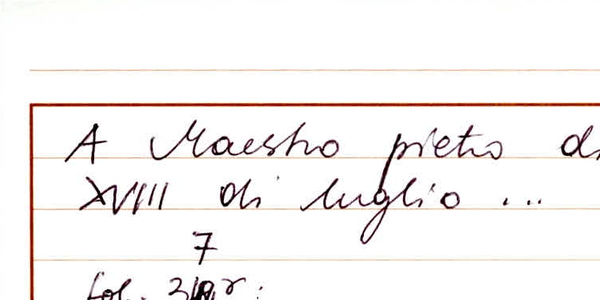 A Maestro pietro di
XVIII di luglio ...
7
fol.